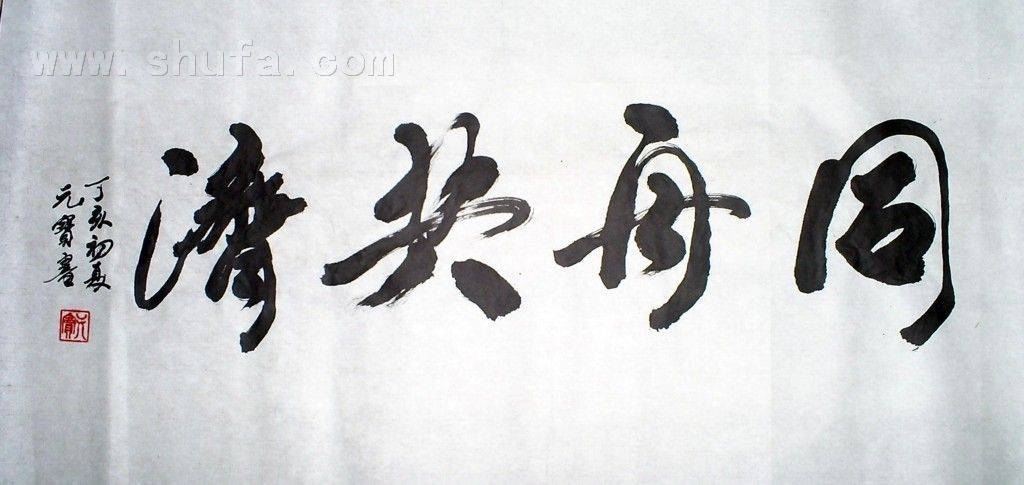 www.shufa.com
同舟共濟
丁亥初夏
元寶書
元寶